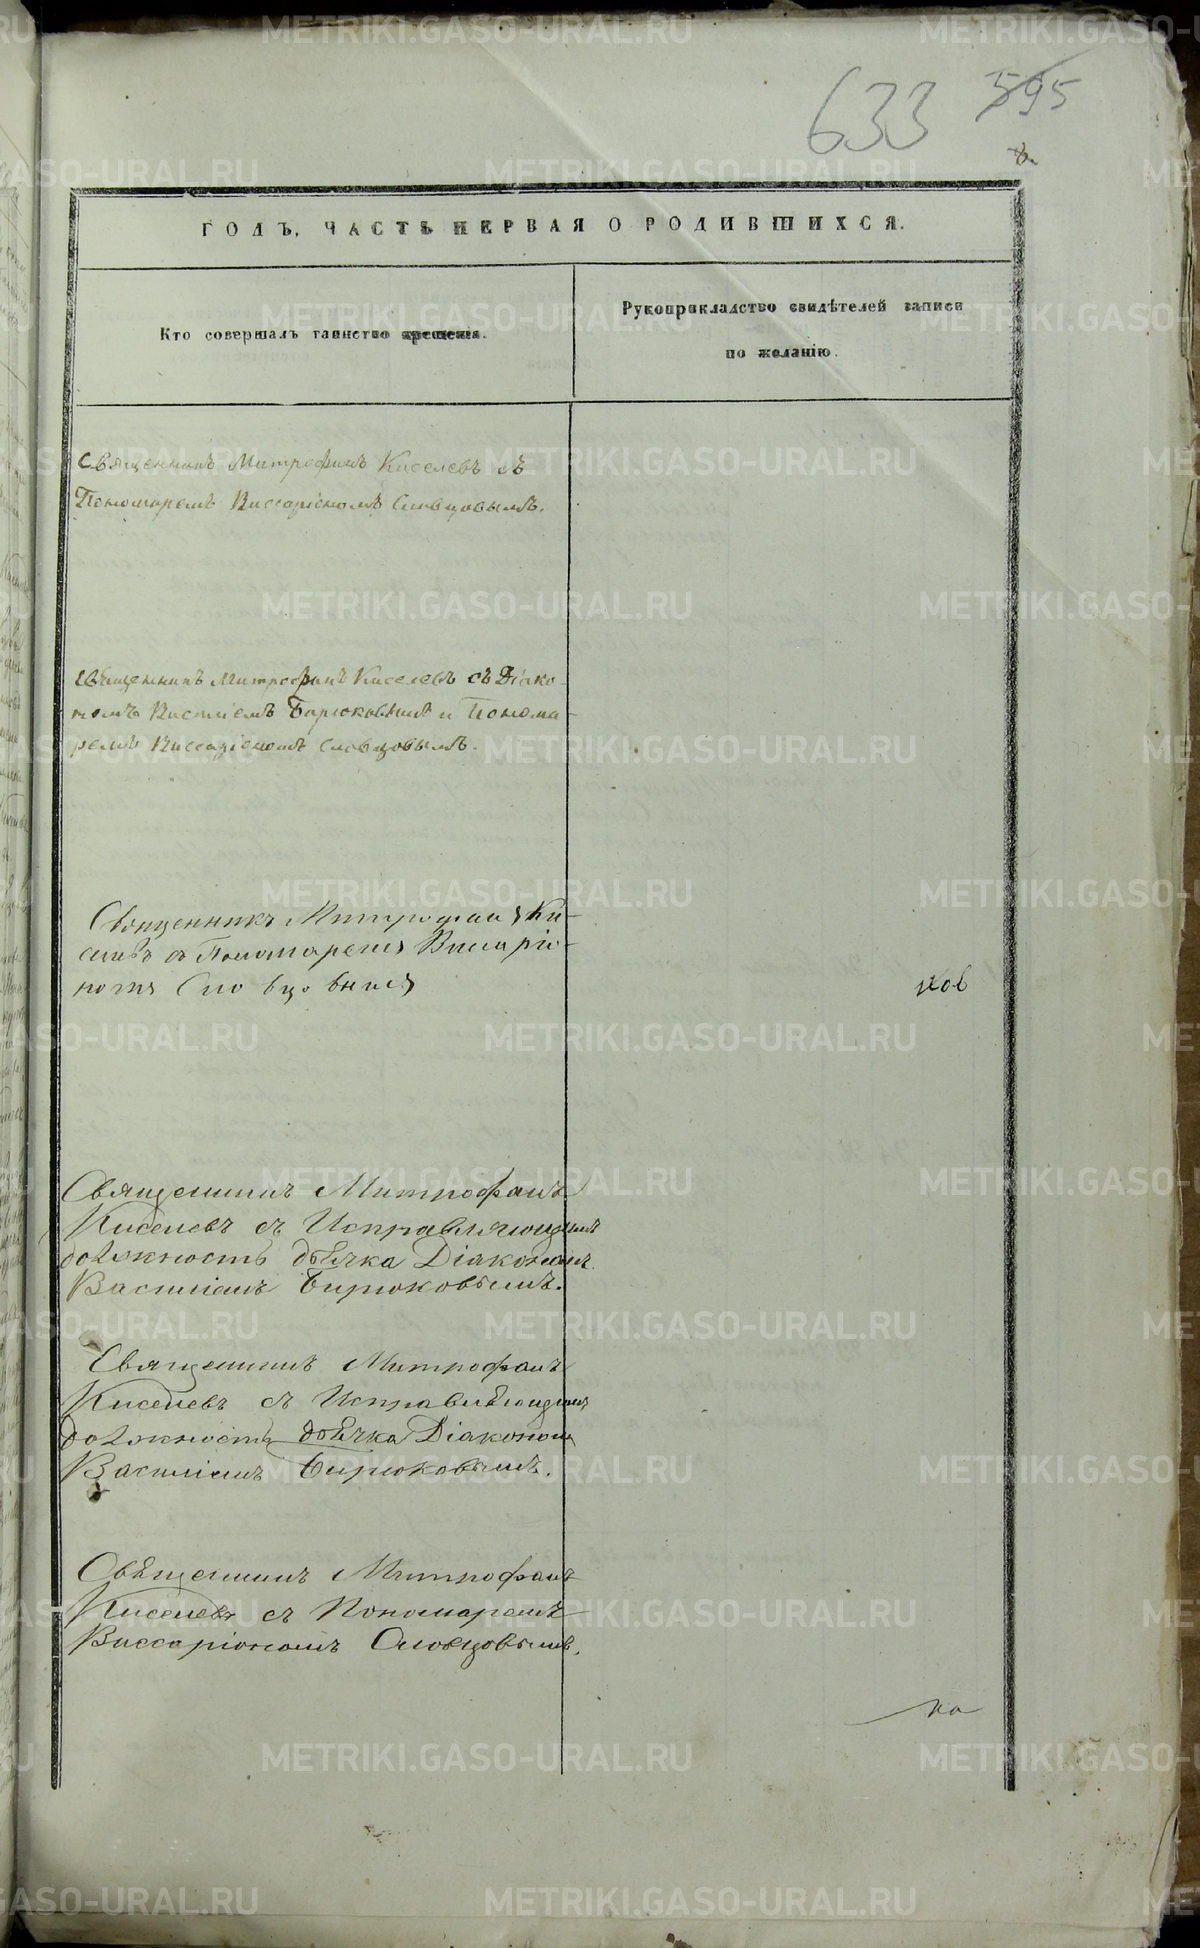 633 595
ГОДЪ, ЧАСТЬ ПЕРВАЯ О РОДИВШИХСЯ.
Кто совершалъ таинство крещенія.
Рукоприкладство свидѣтелей записи
по желанію.
Священникъ Митрофанъ Киселевъ съ
Пономаремъ Виссаріономъ Словцовымъ.
Священникъ Митрофанъ Киселевъ съ Діако-
номъ Василіемъ Бирюковымъ и Понома-
ремъ Виссаріономъ Словцовымъ.
Священникъ Митрофанъ Ки-
селевъ съ Пономаремъ Виссаріо-
номъ Словцовымъ
ков
Священникъ Митрофанъ
Киселевъ съ Исправляющимъ
должность дьячка Діакономъ
Василіемъ Бирюковымъ.
Священникъ Митрофанъ
Киселевъ съ Исправляющимъ
должность дьячка Діакономъ
Василіемъ Бирюковымъ.
Священникъ Митрофанъ
Киселевъ съ Пономаремъ
Виссаріономъ Словцовымъ.
на
METRIKI.GASO-URAL.RU